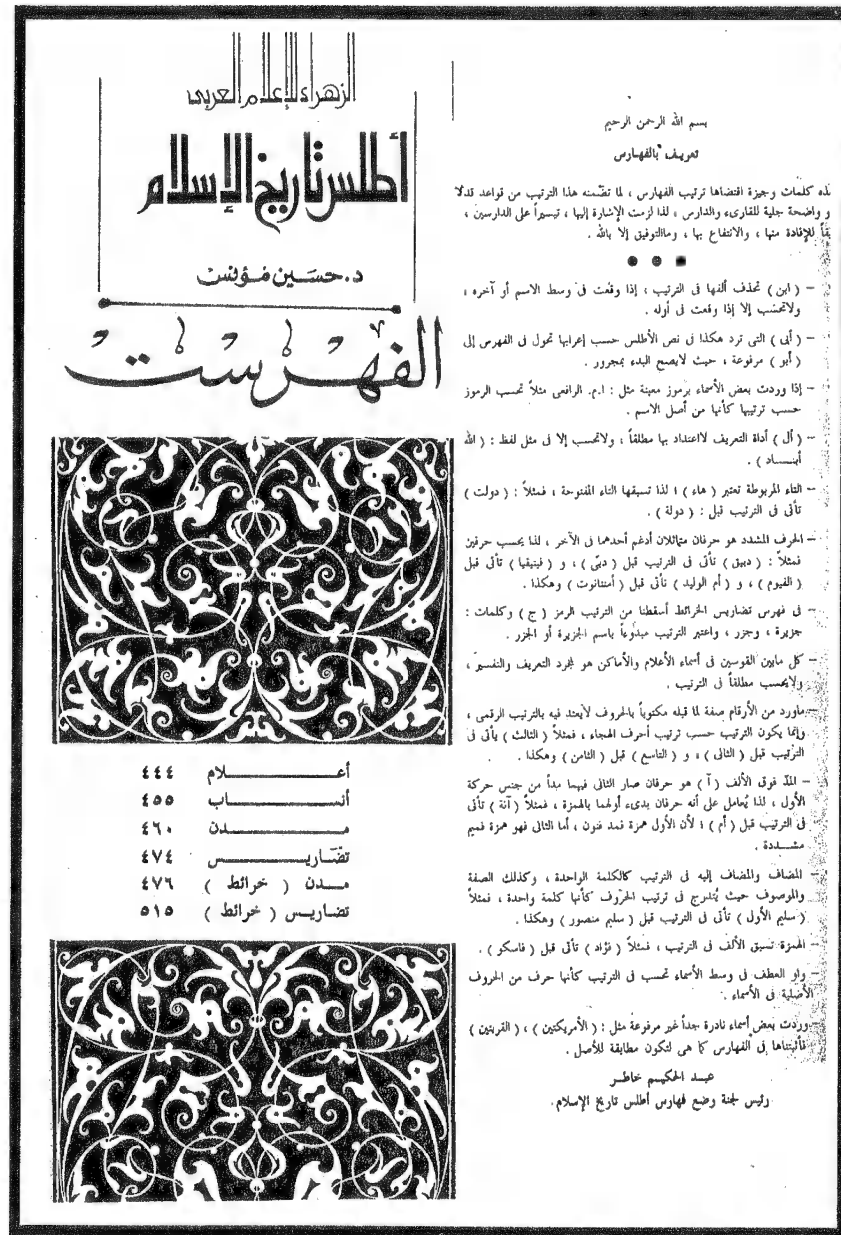 بسم الله الرحمن الرحيم
تعريف بالفهارس
ذه كلمات وجيزة اقتضاها ترتيب الفهارس ، لما تضّمنه هذا الترتيب من قواعد قدلا
و واضحة جلية للقارىء والدارس ، لذا لزمت الإشارة إليها ، تيسيراً على الدارسين ،
للإفادة منها ، والانتفاع بها ، وماالتوفيق إلا بالله .
– ( ابن ) تحذف ألفها فى الترتيب ، إذا وقعت فى وسط الاسم أو آخره ،
ولاتحتسب إلا إذا وقعت فى أوله .
– ( أبى ) التى ترد هكذا فى نص الأطلس حسب إعرابها تحول فى الفهرس إلى
( أبو ) مرفوعة ، حيث لايصح البدء بمجرور .
– إذا وردت بعض الأسماء برموز معينة مثل : ا.م. الرافعى مثلاً تحسب الرموز
حسب ترتيبها كأنها من أصل الاسم .
– ( أل ) أداة التعريف لااعتداد بها مطلقاً ، ولاتحسب إلا فى مثل لفظ : ( الله
أبنـــاد ) .
– التاء المربوطة تعتبر ( هاء ) ؛ لذا تسبقها التاء المفتوحة ، فمثلاً : ( دولت )
تأتى فى الترتيب قبل : ( دولة ) .
– الحرف المشدد هو حرفان متماثلان أدغم أحدهما فى الآخر ، لذا يحسب حرفين
فمثلاً : ( دبيق ) تأتى فى الترتيب قبل ( دبّى ) ، و ( فينيقيا ) تأتى قبل
( الفيوم ) ، و ( أم الوليد ) تأتى قبل ( أمتنانوت ) وهكذا .
– فى فهرس تضاريس الخرائط أسقطنا من الترتيب الرمز ( ج ) وكلمات :
جزيرة ، وجزر ، واعتبر الترتيب مبدوءاً باسم الجزيرة أو الجزر .
– كل مابين القوسين فى أسماء الأعلام والأماكن هو لمجرد التعريف والتفسير ،
ولايحسب مطلقاً فى الترتيب .
– ماورد من الأرقام صفة لما قبله مكتوباً بالحروف لايعتد فيه بالترتيب الرقمى ،
وإنما يكون الترتيب حسب ترتيب أحرف الهجاء ، فمثلاً ( الثالث ) يأتى فى
الترتيب قبل ( الثانى ) ، و ( التاسع ) قبل ( الثامن ) وهكذا .
– المدّ فوق الألف ( آ ) هو حرفان صار الثانى فيهما مداً من جنس حركة
الأول ، لذا يُعامل على أنه حرفان بدىء أولهما بالهمزة ، فمثلاً ( آنة ) تأتى
فى الترتيب قبل ( أم ) ؛ لأن الأول همزة فمد فنون ، أما الثانى فهو همزة فميم
مشـــددة .
– المضاف والمضاف إليه فى الترتيب كالكلمة الواحدة ، وكذلك الصفة
والموصوف حيث يُتدرج فى ترتيب الحروف كأنها كلمة واحدة ، فمثلاً
( سليم الأول ) تأتى فى الترتيب قبل ( سليم منصور ) وهكذا .
– الهمزة تسبق الألف فى الترتيب ، فمثلاً ( فؤاد ) تأتى قبل ( فاسكو ) .
– واو العطف فى وسط الأسماء تحسب فى الترتيب كأنها حرف من الحروف
الأصلية فى الأسماء .
– وردت بعض أسماء نادرة جداً غير مرفوعة مثل : ( الأمريكتين ) ، ( القريتين )
فأثبتناها فى الفهارس كما هى لتكون مطابقة للأصل .
عبـد الحكيـم خاطـر
رئيس لجنة وضع فهارس أطلس تاريخ الإسلام.
الزهراء للإعلام العربى
أطلس تاريخ الإسلام
د. حسين مؤنس
الفهرست
أعـــــــــلام ٤٤٤
أنســـــــــاب ٤٥٥
مـــــــــدن ٤٦٠
تضاريـــــــس ٤٧٤
مـــدن ( خرائط ) ٤٧٦
تضاريـس ( خرائط ) ٥١٥